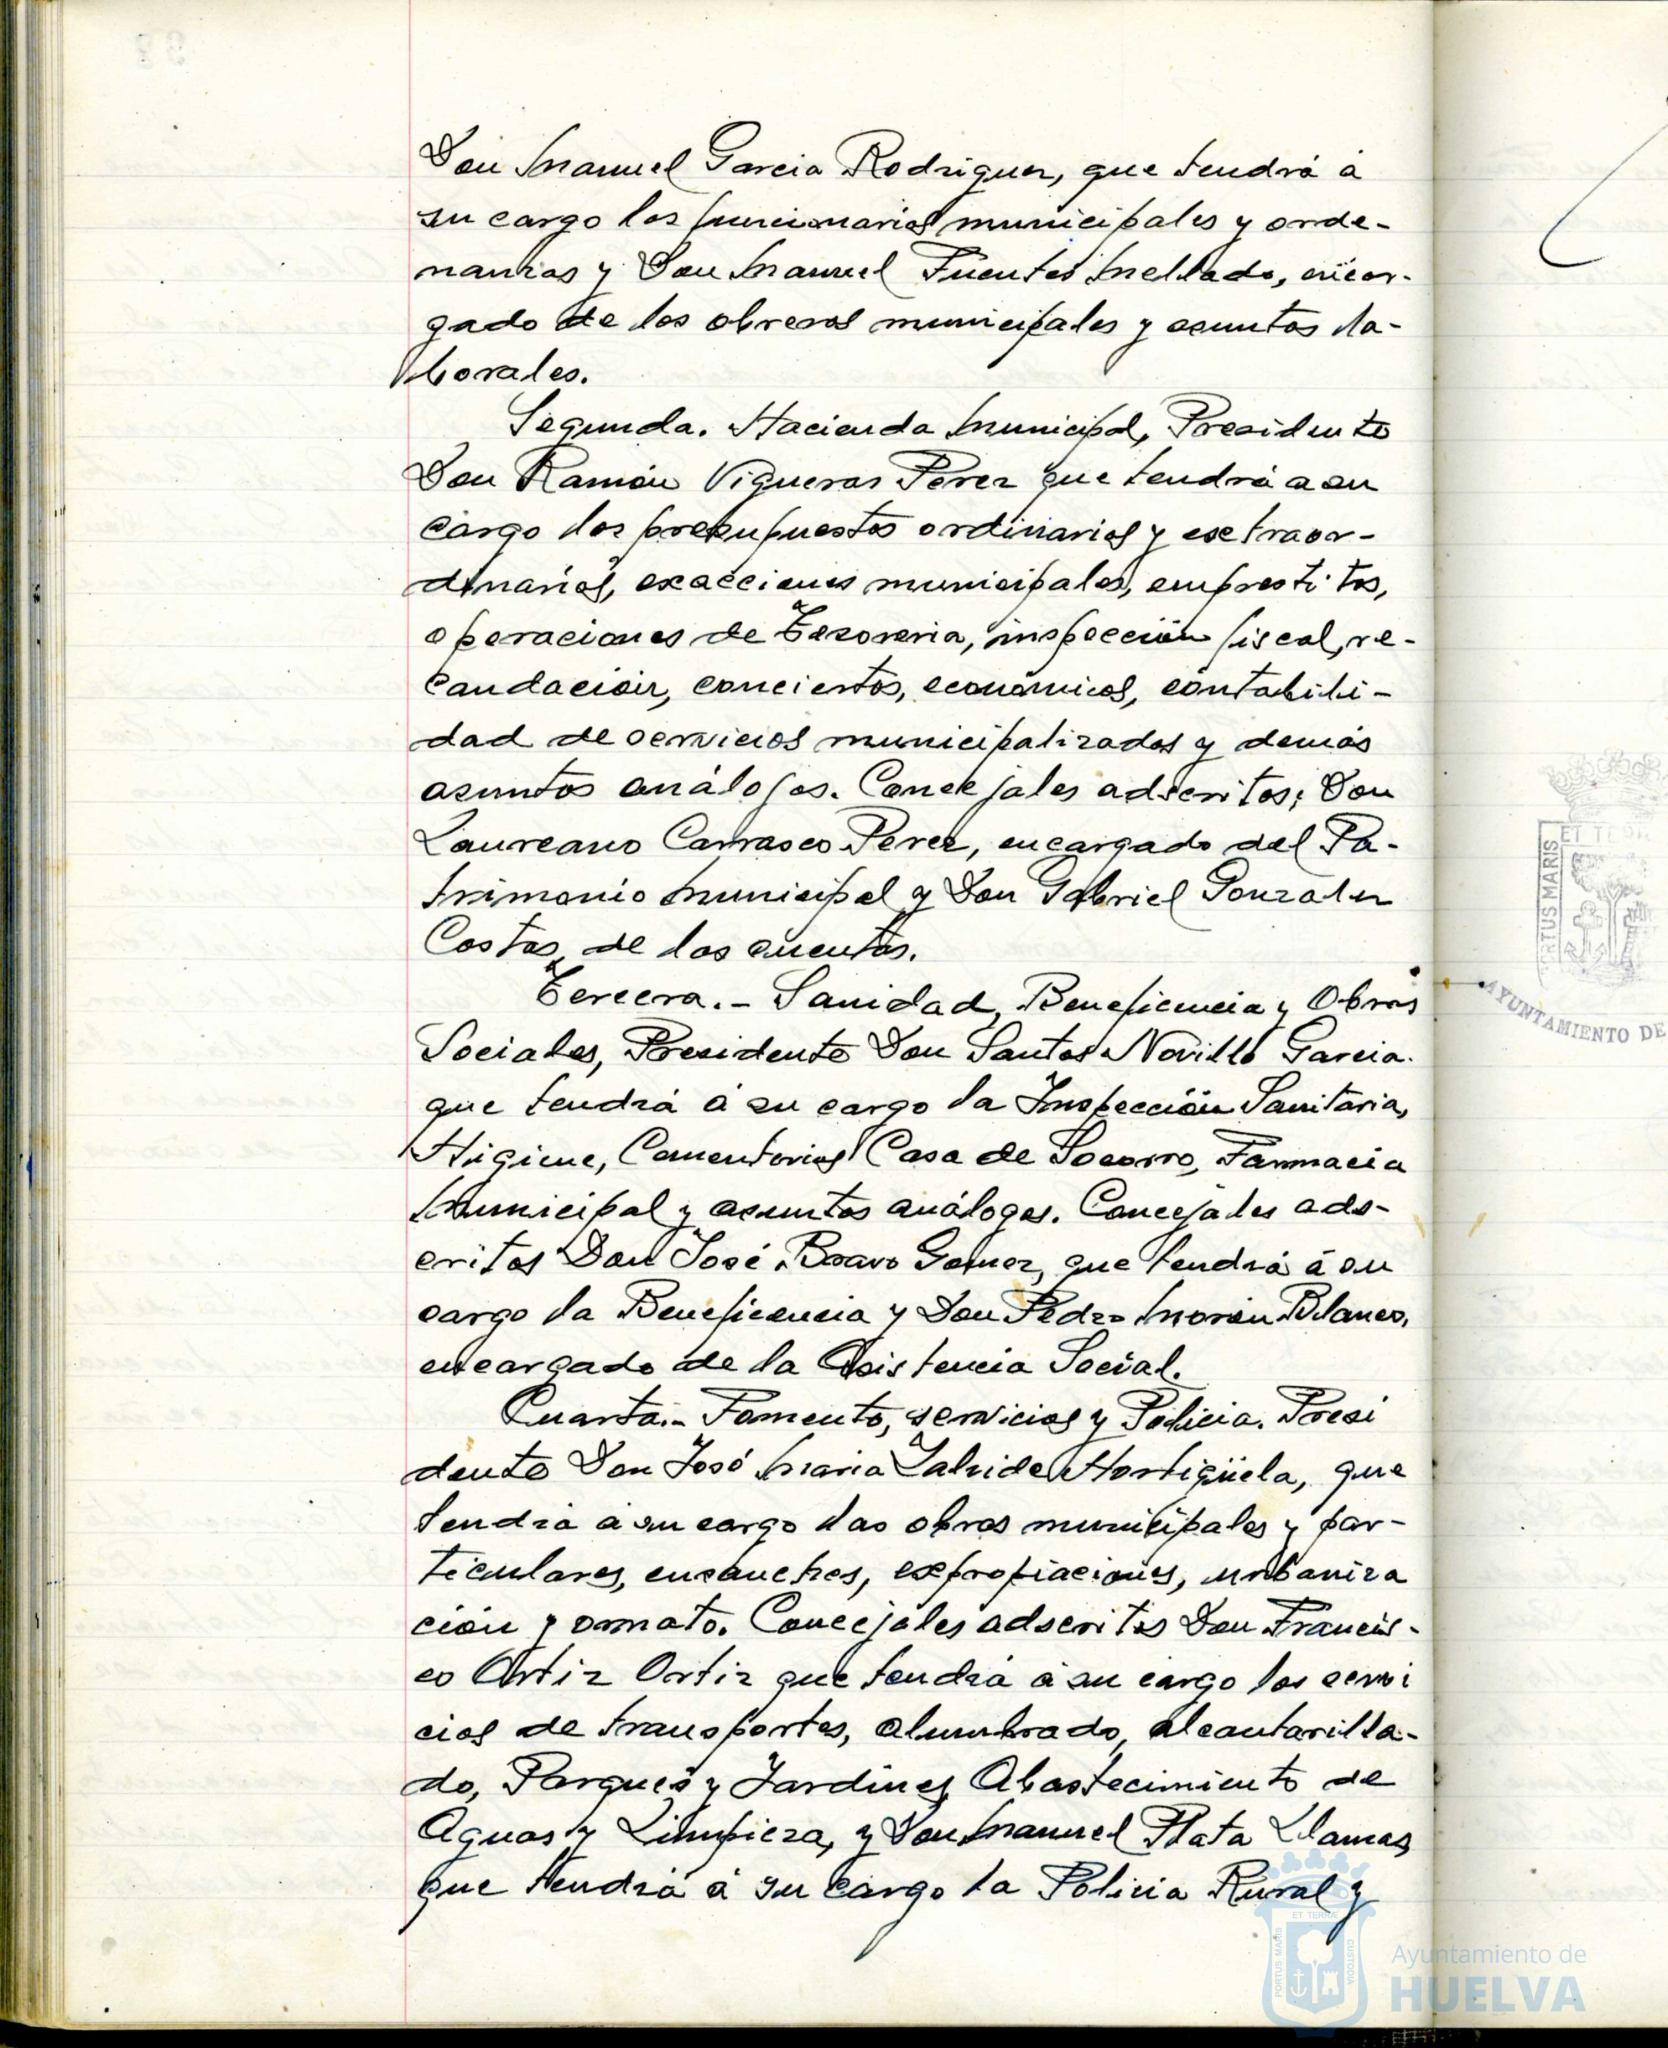 Don Manuel Garcia Rodriguez, que tendrá á
su cargo los funcionarios municipales y orde-
nanzas y Don Manuel Fuentes Mellado, encar-
gado de los obreros municipales y asuntos la-
borales.
Segunda. Hacienda Municipal, Presidente
Don Ramón Vigueras Perez que tendrá a su
cargo los presupuestos ordinarios y extraor-
dinarios, exacciones municipales, emprestitos,
operaciones de Tesoreria, inspección fiscal, re-
caudación, conciertos, económicos, contabili-
dad de servicios municipalizados y demás
asuntos análogos. Concejales adscritos; Don
Laureano Carrasco Perez, encargado del Pa-
trimonio Municipal y Don Gabriel Gonzalez
Costas, de las cuentas.
Tercera.- Sanidad, Beneficencia y Obras
Sociales, Presidente Don Santos Novillo Garcia.
que tendrá á su cargo la Inspección Sanitaria,
Higiene, Cementerios Casa de Socorro, Farmacia
Municipal y asuntos análogos. Concejales ads-
critos Don José Bravo Gomez, que tendrá á su
cargo la Beneficencia y Don Pedro Morón Blanco,
encargado de la Asistencia Social.
Cuarta.- Fomento, servicios y Policia. Presi
dente Don José Maria Hortigüela, que
tendrá a su cargo las obras municipales y par-
ticulares, ensanches, expropiaciones, urbaniza
ción y ornato. Concejales adscritos Don Francis-
co Ortiz Ortiz que tendrá á su cargo los servi
cios de transportes, alumbrado, alcantarilla-
do, Parques y Jardines, Abastecimiento de
Aguas y Limpieza, y Don Manuel Plata Llamas
que tendrá á su cargo la Policia Rural y
ET TERR
PORTUS MARIS
AYUNTAMIENTO DE
ET TERRÆ
PORTUS MARIS
CUSTODIA
Ayuntamiento de
HUELVA